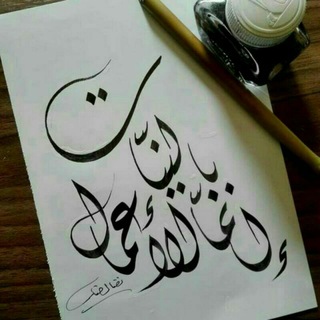 إنما الأعمال
بالنيات